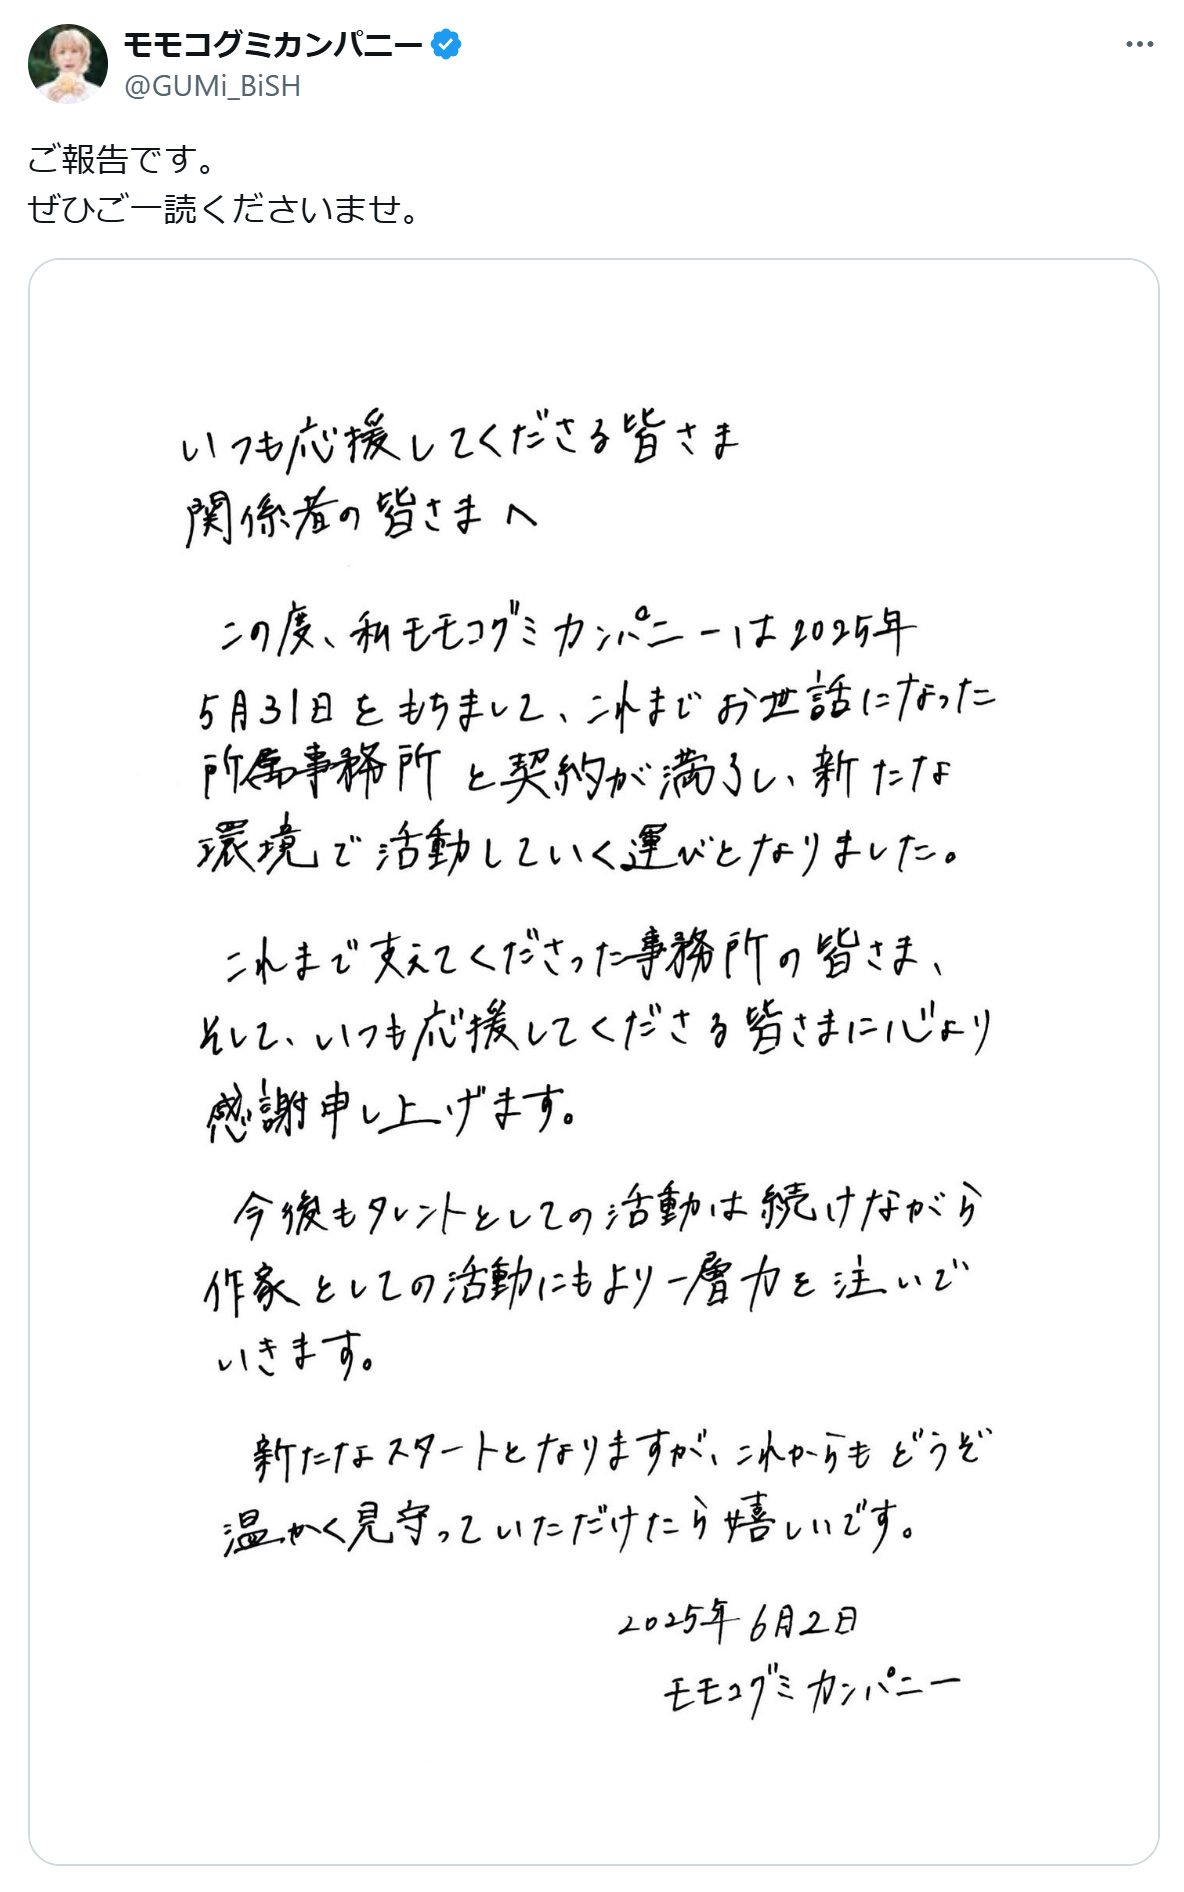 モモコグミカンパニー
@GUMi_BiSH
ご報告です。
ぜひご一読くださいませ。
いつも応援してくださる皆さま
関係者の皆さまへ
この度、私モモコグミカンパニーは2025年
5月31日をもちまして、これまでお世話になった
所属事務所と契約が満了し、新たな
環境で活動していく運びとなりました。
これまで支えてくださった事務所の皆さま、
そして、いつも応援してくださる皆さまに心より
感謝申し上げます。
今後もタレントとしての活動は続けながら
作家としての活動にもより一層力を注いで
いきます。
新たなスタートとなりますが、これからもどうぞ
温かく見守っていただけたら嬉しいです。
2025年6月2日
モモコグミカンパニー